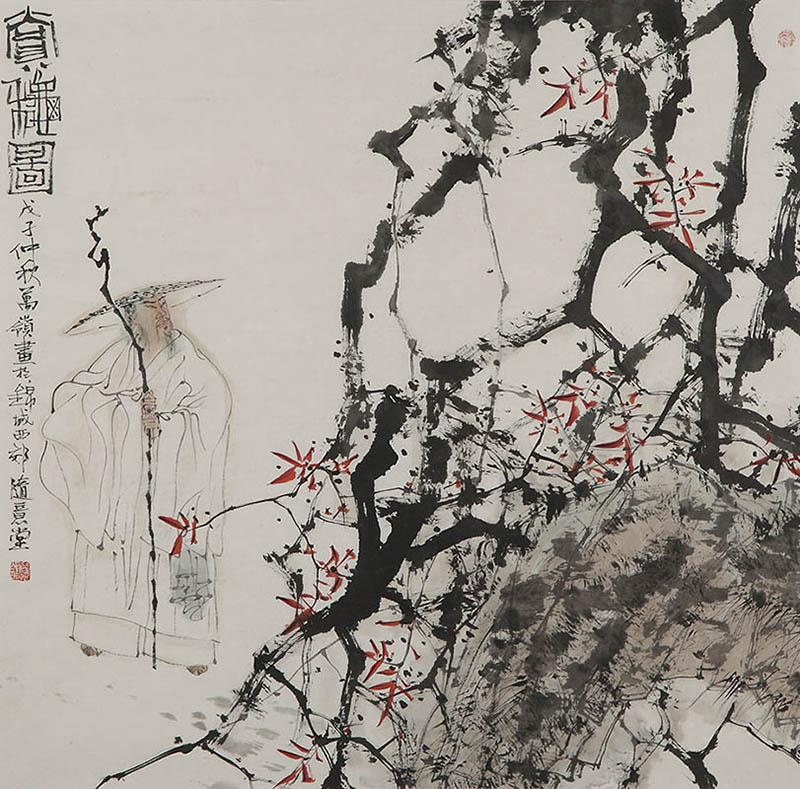 賞龝圖
戊子仲秋萬嶺畫於錦城西郊隨意堂